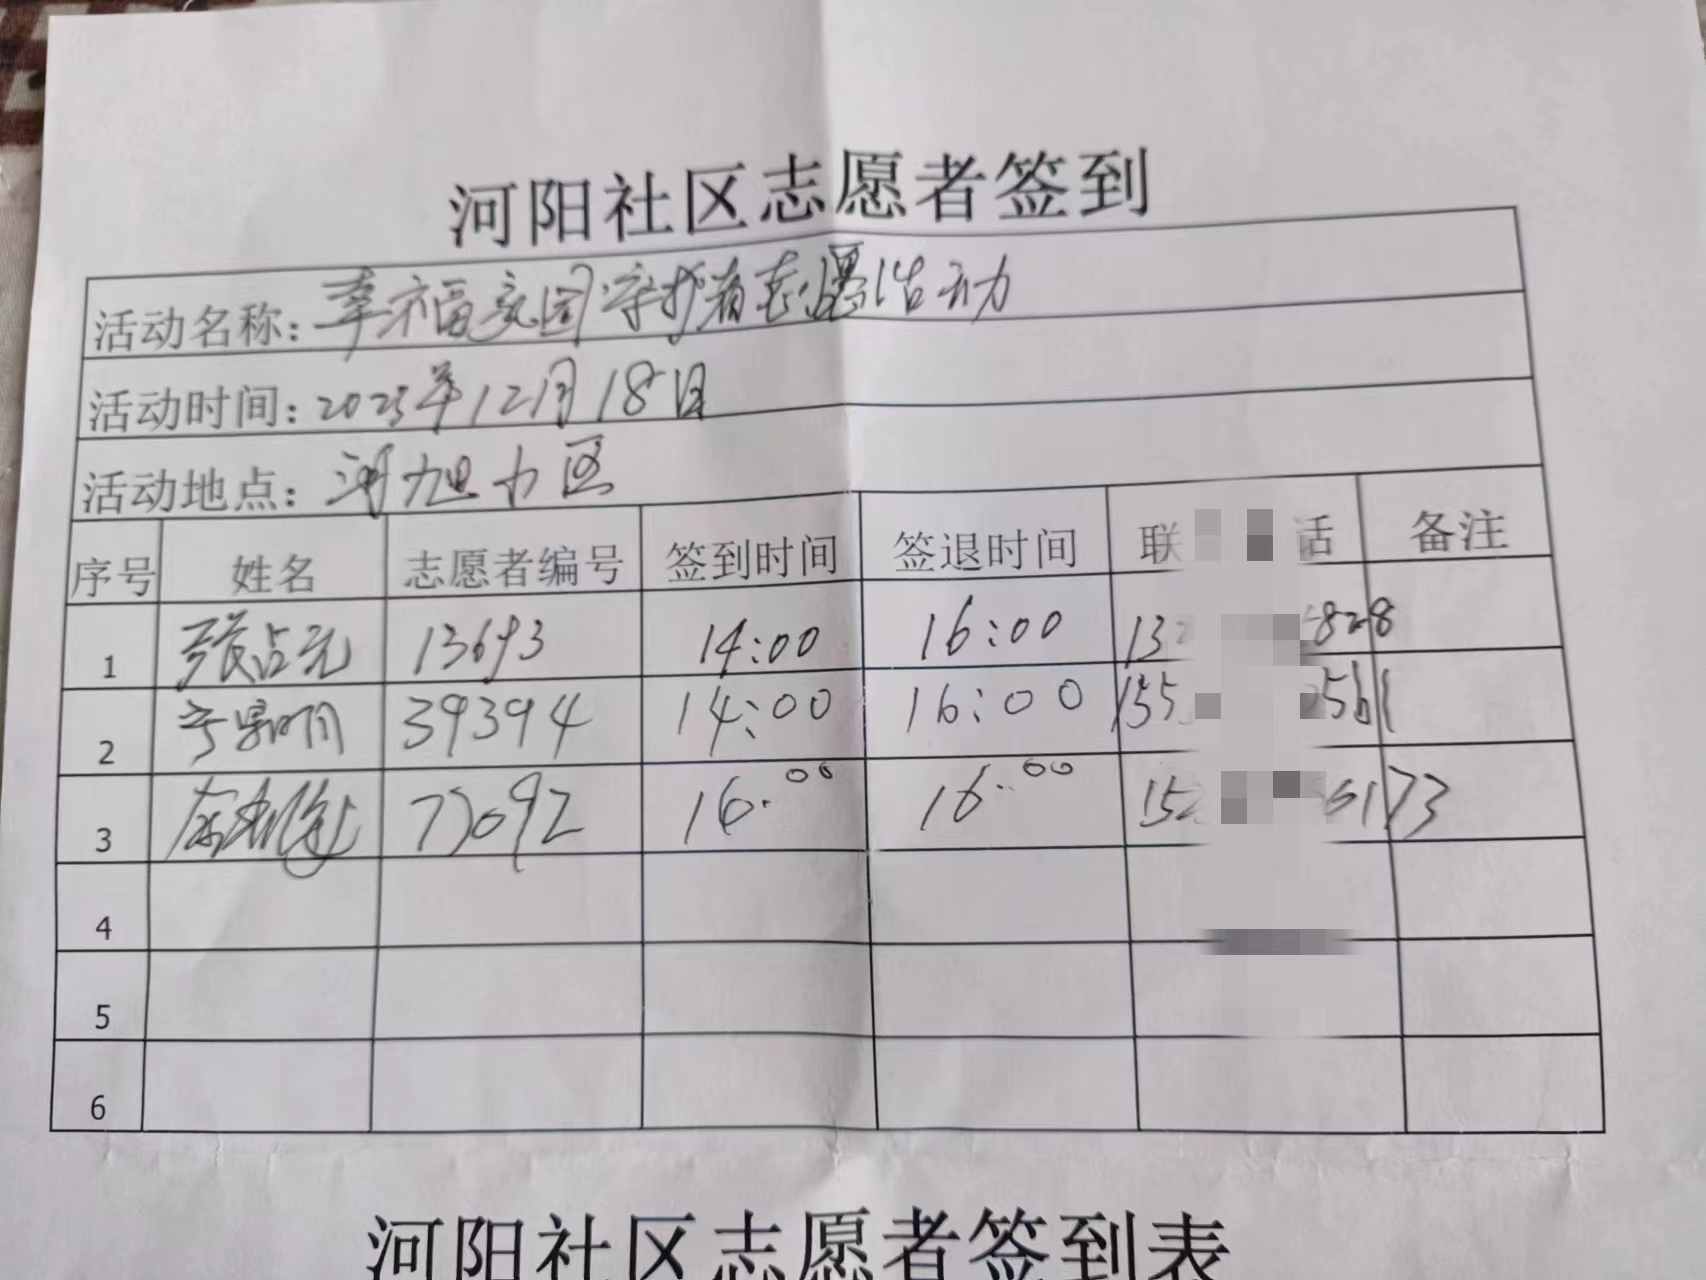 河阳社区志愿者签到
活动名称：幸福家园守护者志愿活动
活动时间：2025年12月18日
活动地点：河旭小区
序号 姓名 志愿者编号 签到时间 签退时间 联 话 备注
1 张占元 13693 14:00 16:00 13 828
2 39394 14:00 16:00 155 0561
3 73092 16:00 16:00 15 5173
4
5
6
河阳社区志愿者签到表